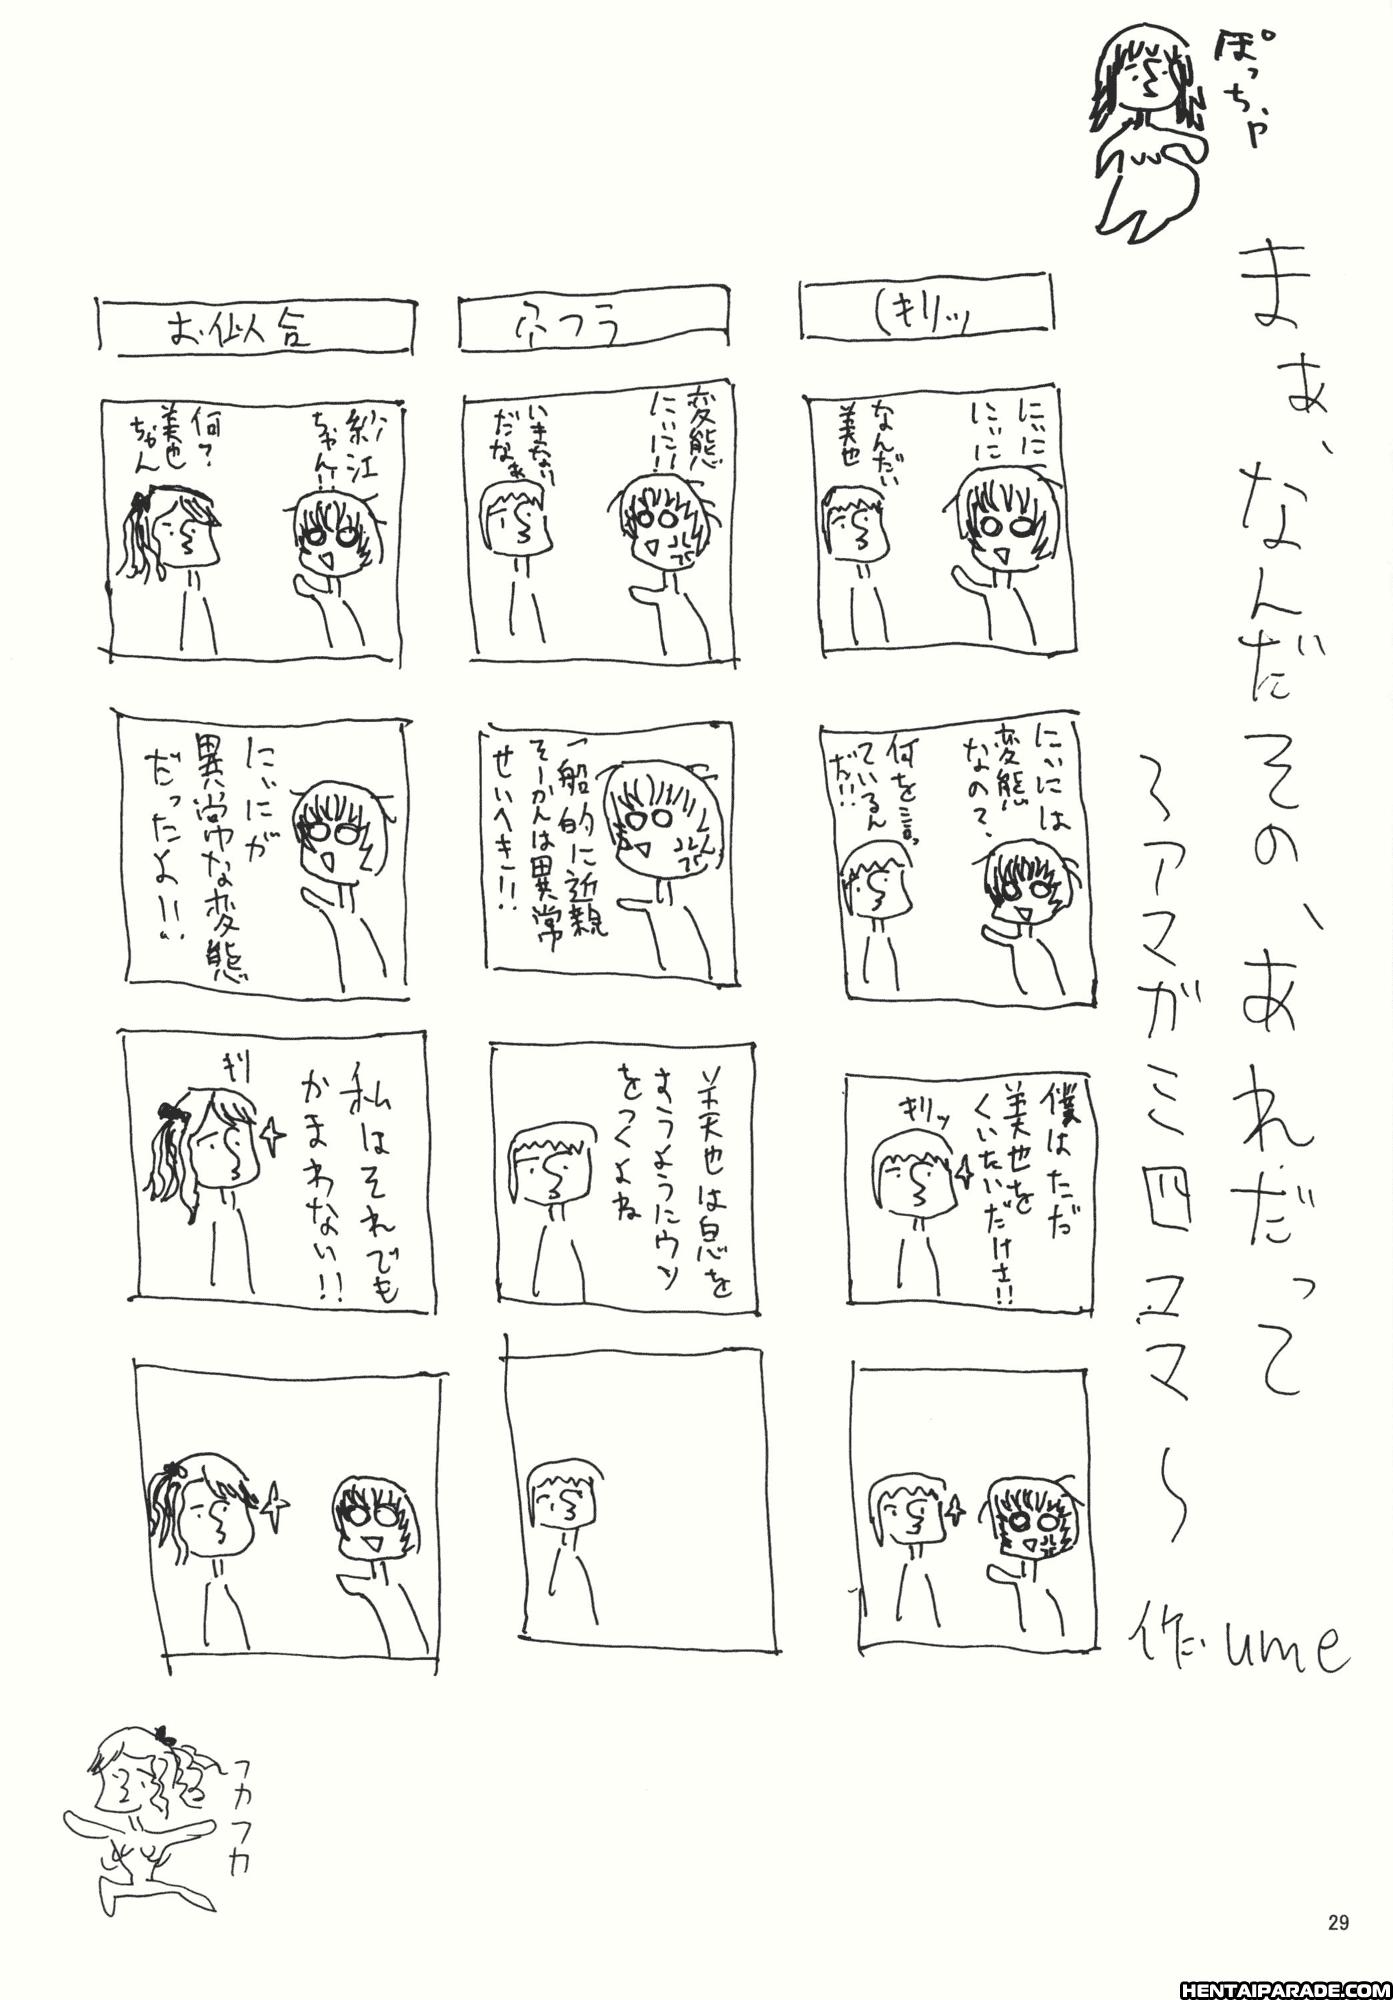 ぽっちゃ
まぁ、なんだその、あれだって
〜アマガミ四コマ〜
作:ume
(キリッ
にぃに
にぃに
なんだい
美也
にぃには
変態
なの?
何を言っ
ているん
だ!!
僕はただ
美也を
くいたいだけさ!!
キリッ
変態
にぃに!!
いきなり
だなぁ
一船的に近親
そーかんは異常
せいへき!!
美也は息を
すうようにウソ
をつくよね
お似合
紗江
ちゃん!!
何?
美也
ちゃん
にぃにが
異常な変態
だったよ!!
私はそれでも
かまわない!!
キリ
フカフカ
29
HENTAIPARADE.COM